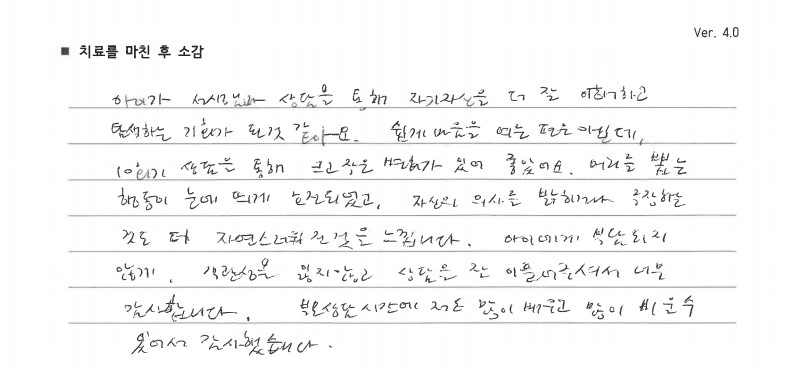 Ver. 4.0
■ 치료를 마친 후 소감
아이가 선생님과 상담을 통해 자기자신을 더 잘 이해하고
탐색하는 기회가 된것 같아요. 쉽게 마음을 여는 편은 아닌데,
10회기 상담을 통해 크고 작은 변화가 있어 좋았어요. 머리를 뽑는
행동이 눈에 띄게 호전되었고, 자신의 의사를 밝히거나 주장하는
것도 더 자연스러워진 것을 느낍니다. 아이에게 부담되지
않게, 객관성을 잃지않고 상담을 잘 이끌어주셔서 너무
감사합니다. 부모상담시간에 저도 많이 배우고 많이 비울수
있어서 감사했습니다.